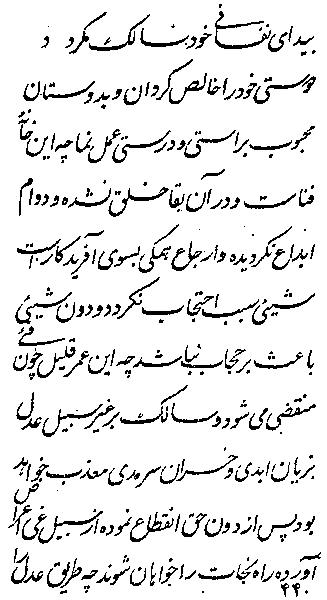 بیدای نفسانی خود سالک مگرد د
دوستی خود را خالص گردان و بدوستان
محبوب براستی و درستی عمل نما چه این خانهٔ
فناست و در آن بقا خلق نشده و دوام
ابداع نگردیده و ارجاع همگی بسوی آفریدگار است
شیئی سبب احتجاب نگردد و دون شیئی
باعث بر حجاب نباشد چه این عمر قلیل چون فیئ
منقضی میشود و سالک بر غیر سبیل عدل
بزیان ابدی و خسران سرمدی معذب خواهد
بود پس از دون حق انقطاع نموده از سبیل غی اعراض
آورده راه نجات را خواهان شوند چه طریق عدل را
۴۴۰